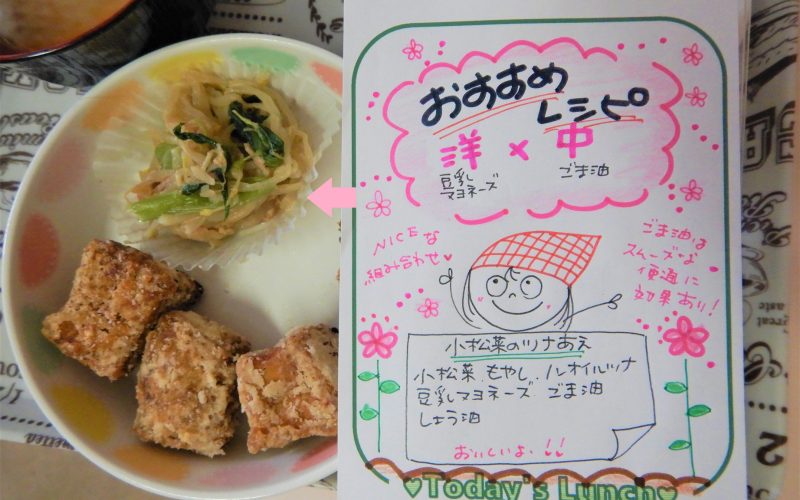 おすすめ
レシピ
洋 × 中
豆乳
マヨネーズ
ごま油
NICEな
組み合わせ♥
ごま油は
スムーズな
便通に
効果あり!
小松菜のツナあえ
小松菜 もやし ノンオイルツナ
豆乳マヨネーズ ごま油
しょう油
おいしいよ、!!
♥Today's Lunch♥